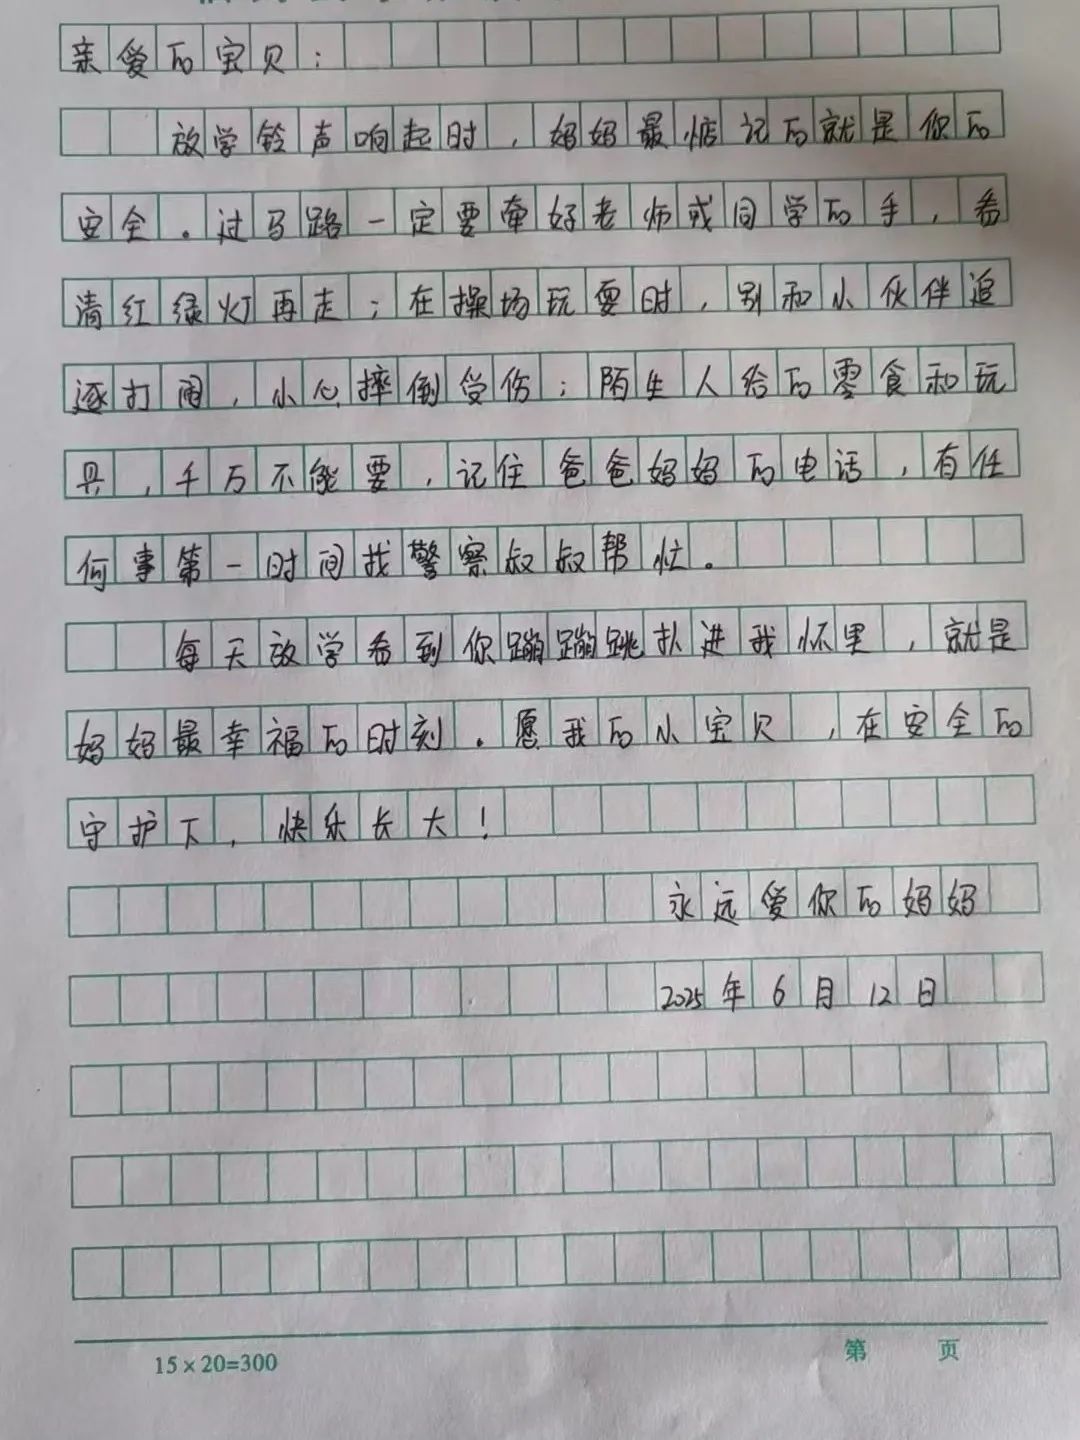 亲爱的宝贝：
放学铃声响起时，妈妈最惦记的就是你的
安全。过马路一定要牵好老师或同学的手，看
清红绿灯再走；在操场玩耍时，别和小伙伴追
逐打闹，小心摔倒受伤；陌生人给的零食和玩
具，千万不能要，记住爸爸妈妈的电话，有任
何事第一时间找警察叔叔帮忙。
每天放学看到你蹦蹦跳扑进我怀里，就是
妈妈最幸福的时刻。愿我的小宝贝，在安全的
守护下，快乐长大！
永远爱你的妈妈
2025年6月12日
15×20=300 第 页